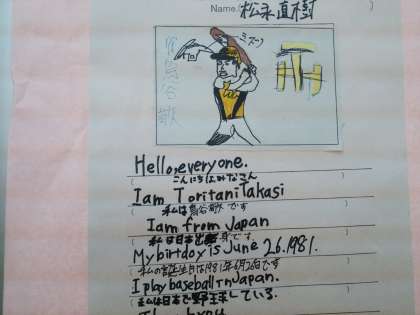 Name. 松永直樹
鳥谷敬
ミズノ
Hello, everyone.
こんにちは みなさん
Iam ToritaniTakasi
私は鳥谷敬です
Iam from Japan
私は日本出身です
My birtdoy is June 26.1981.
私の誕生日は1981年6月26日です
I play baseball in Japan.
私は日本で野球している.